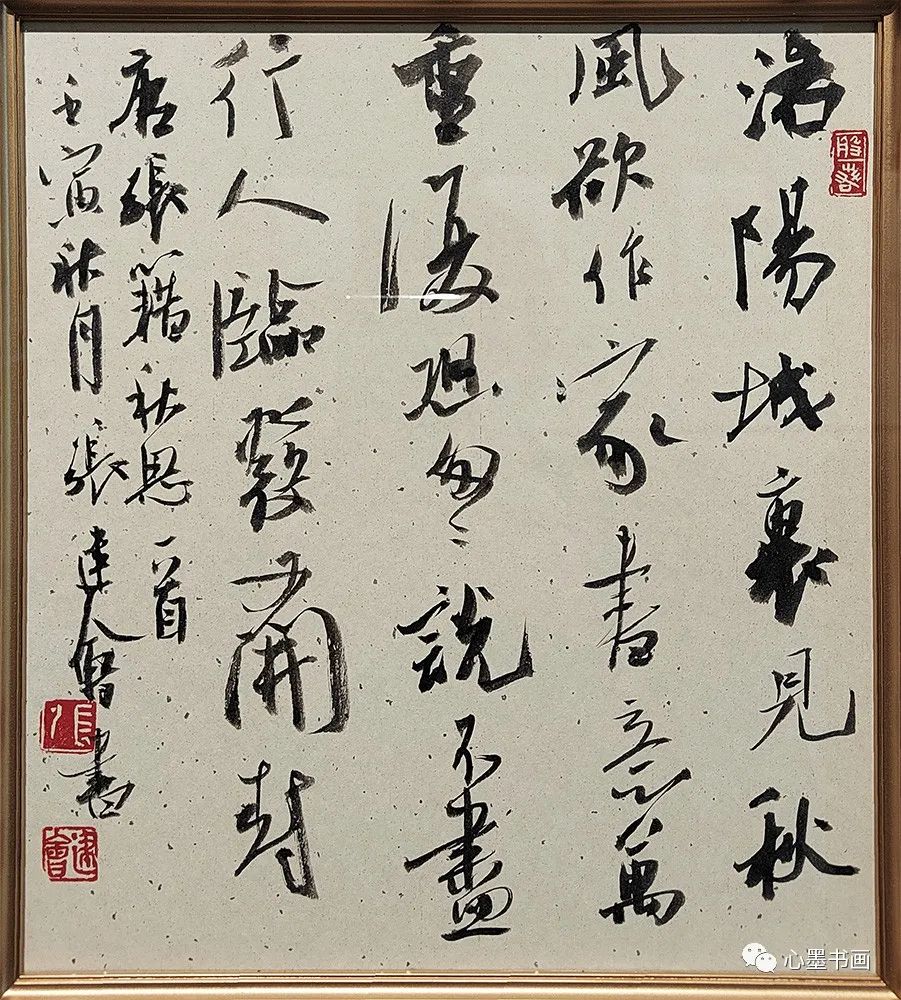 洛陽城裏見秋
風欲作家書意萬
重復恐匆〻說不盡
行人臨發又開封
唐張籍秋思一首
壬寅秋月張建會書
張
建會
心墨书画